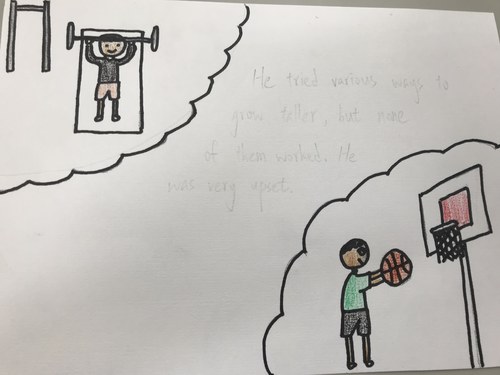 He tried various ways to
grow taller, but none
of them worked. He
was very upset.